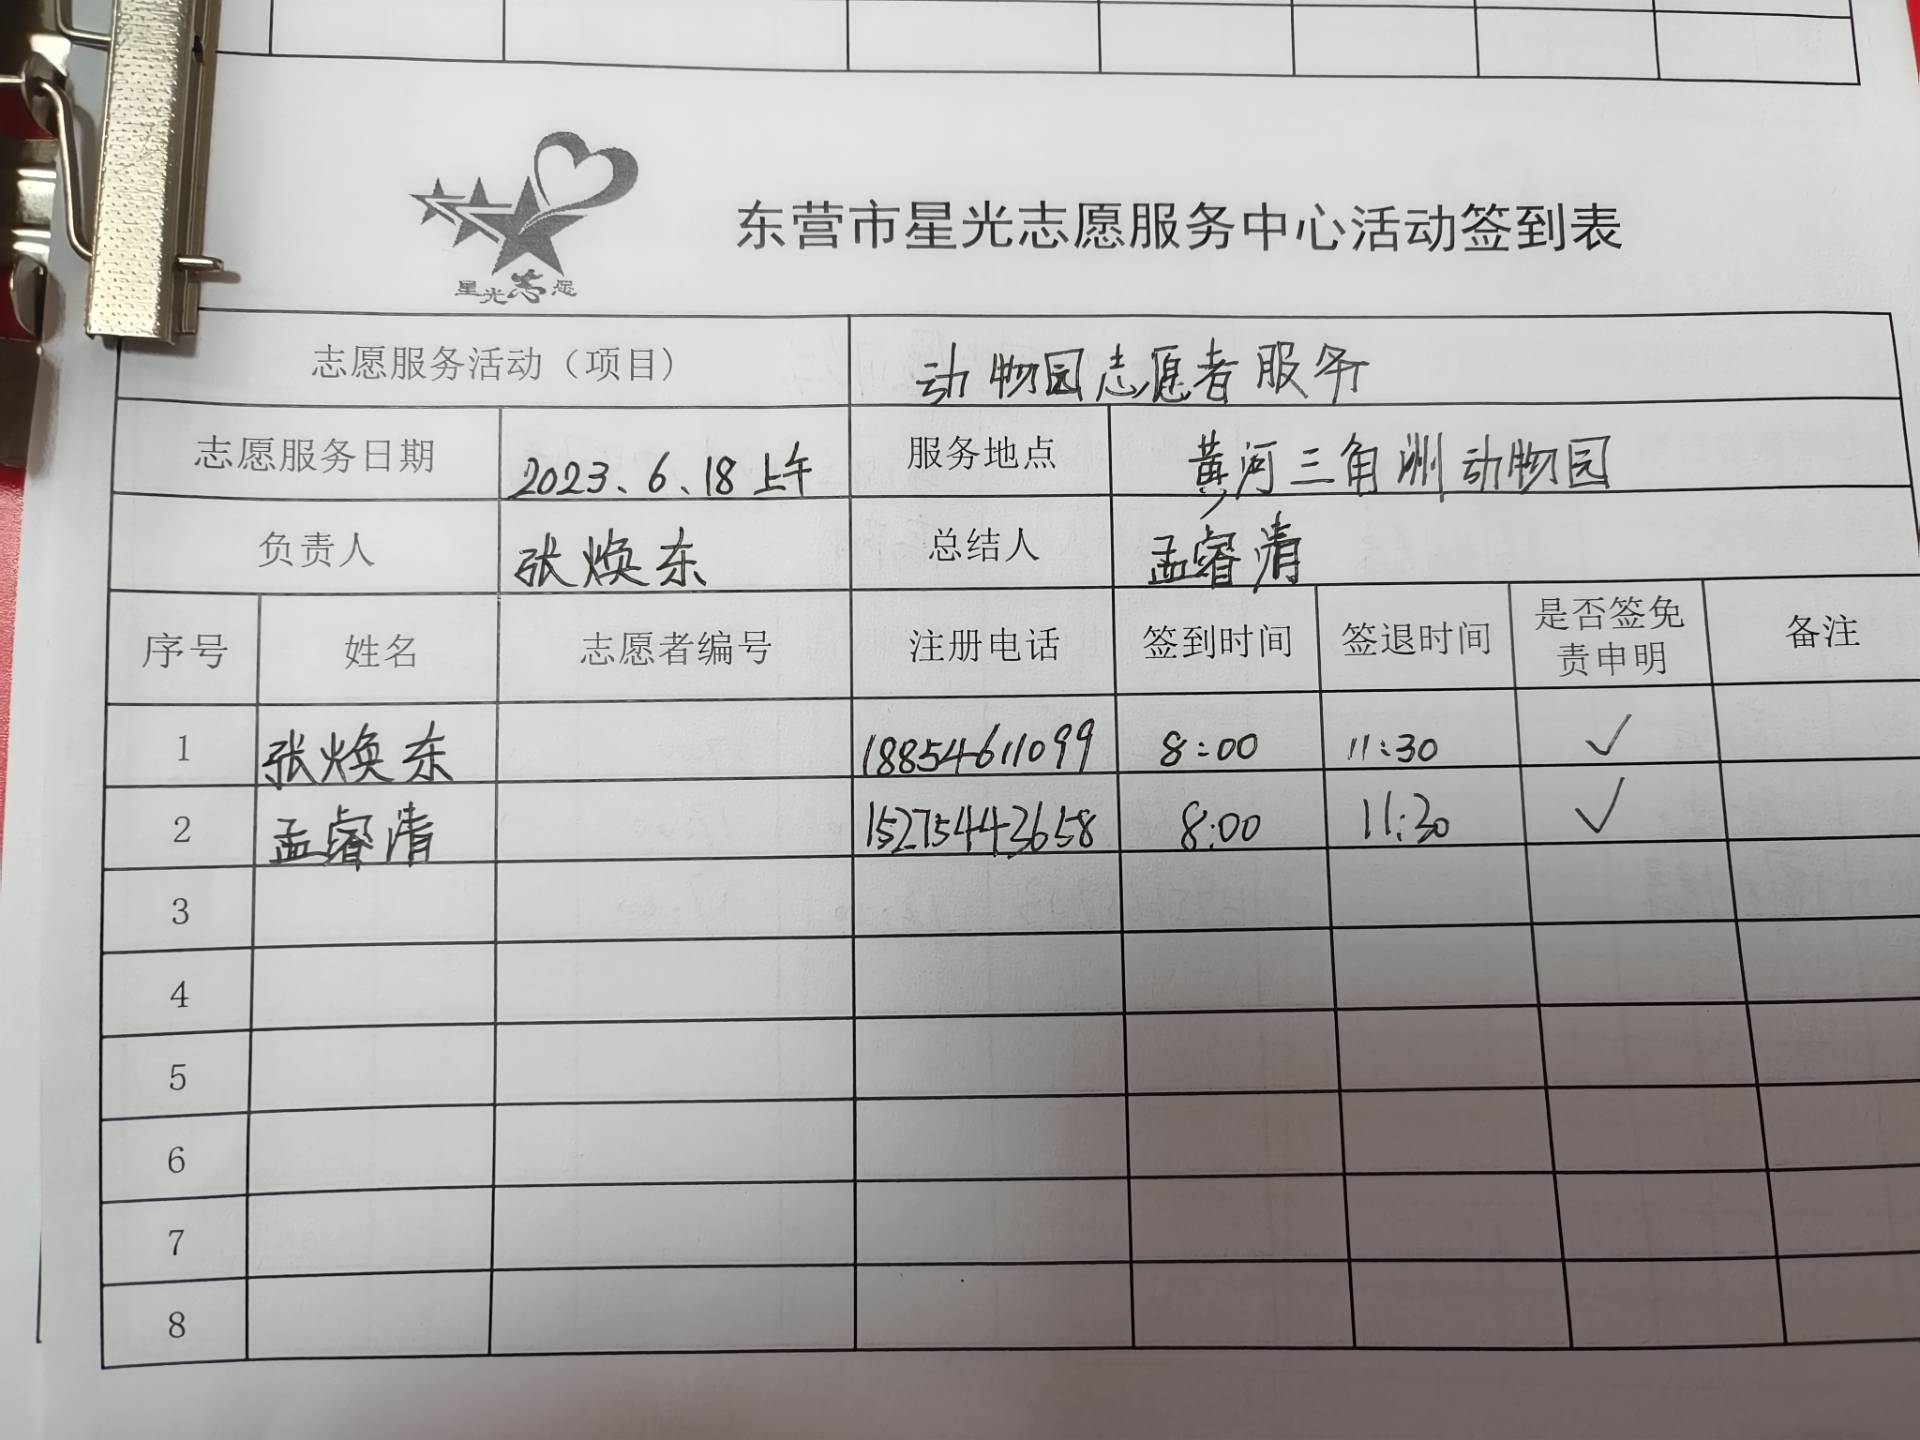 星光志愿
东营市星光志愿服务中心活动签到表
志愿服务活动（项目） 动物园志愿者服务
志愿服务日期 2023、6、18上午 服务地点 黄河三角洲动物园
负责人 张焕东 总结人 孟睿清
序号 姓名 志愿者编号 注册电话 签到时间 签退时间 是否签免 备注
责申明
1 张焕东 18854611099 8:00 11:30 ✓
2 孟睿清 15275443658 8:00 11:30 ✓
3
4
5
6
7
8